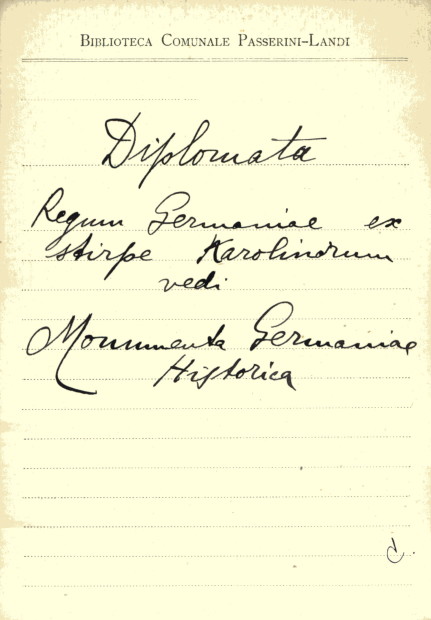 BIBLIOTECA COMUNALE PASSERINI-LANDI
Diplomata
Regum Germaniae ex
stirpe Karolinorum
vedi
Monumenta Germaniae
Historica